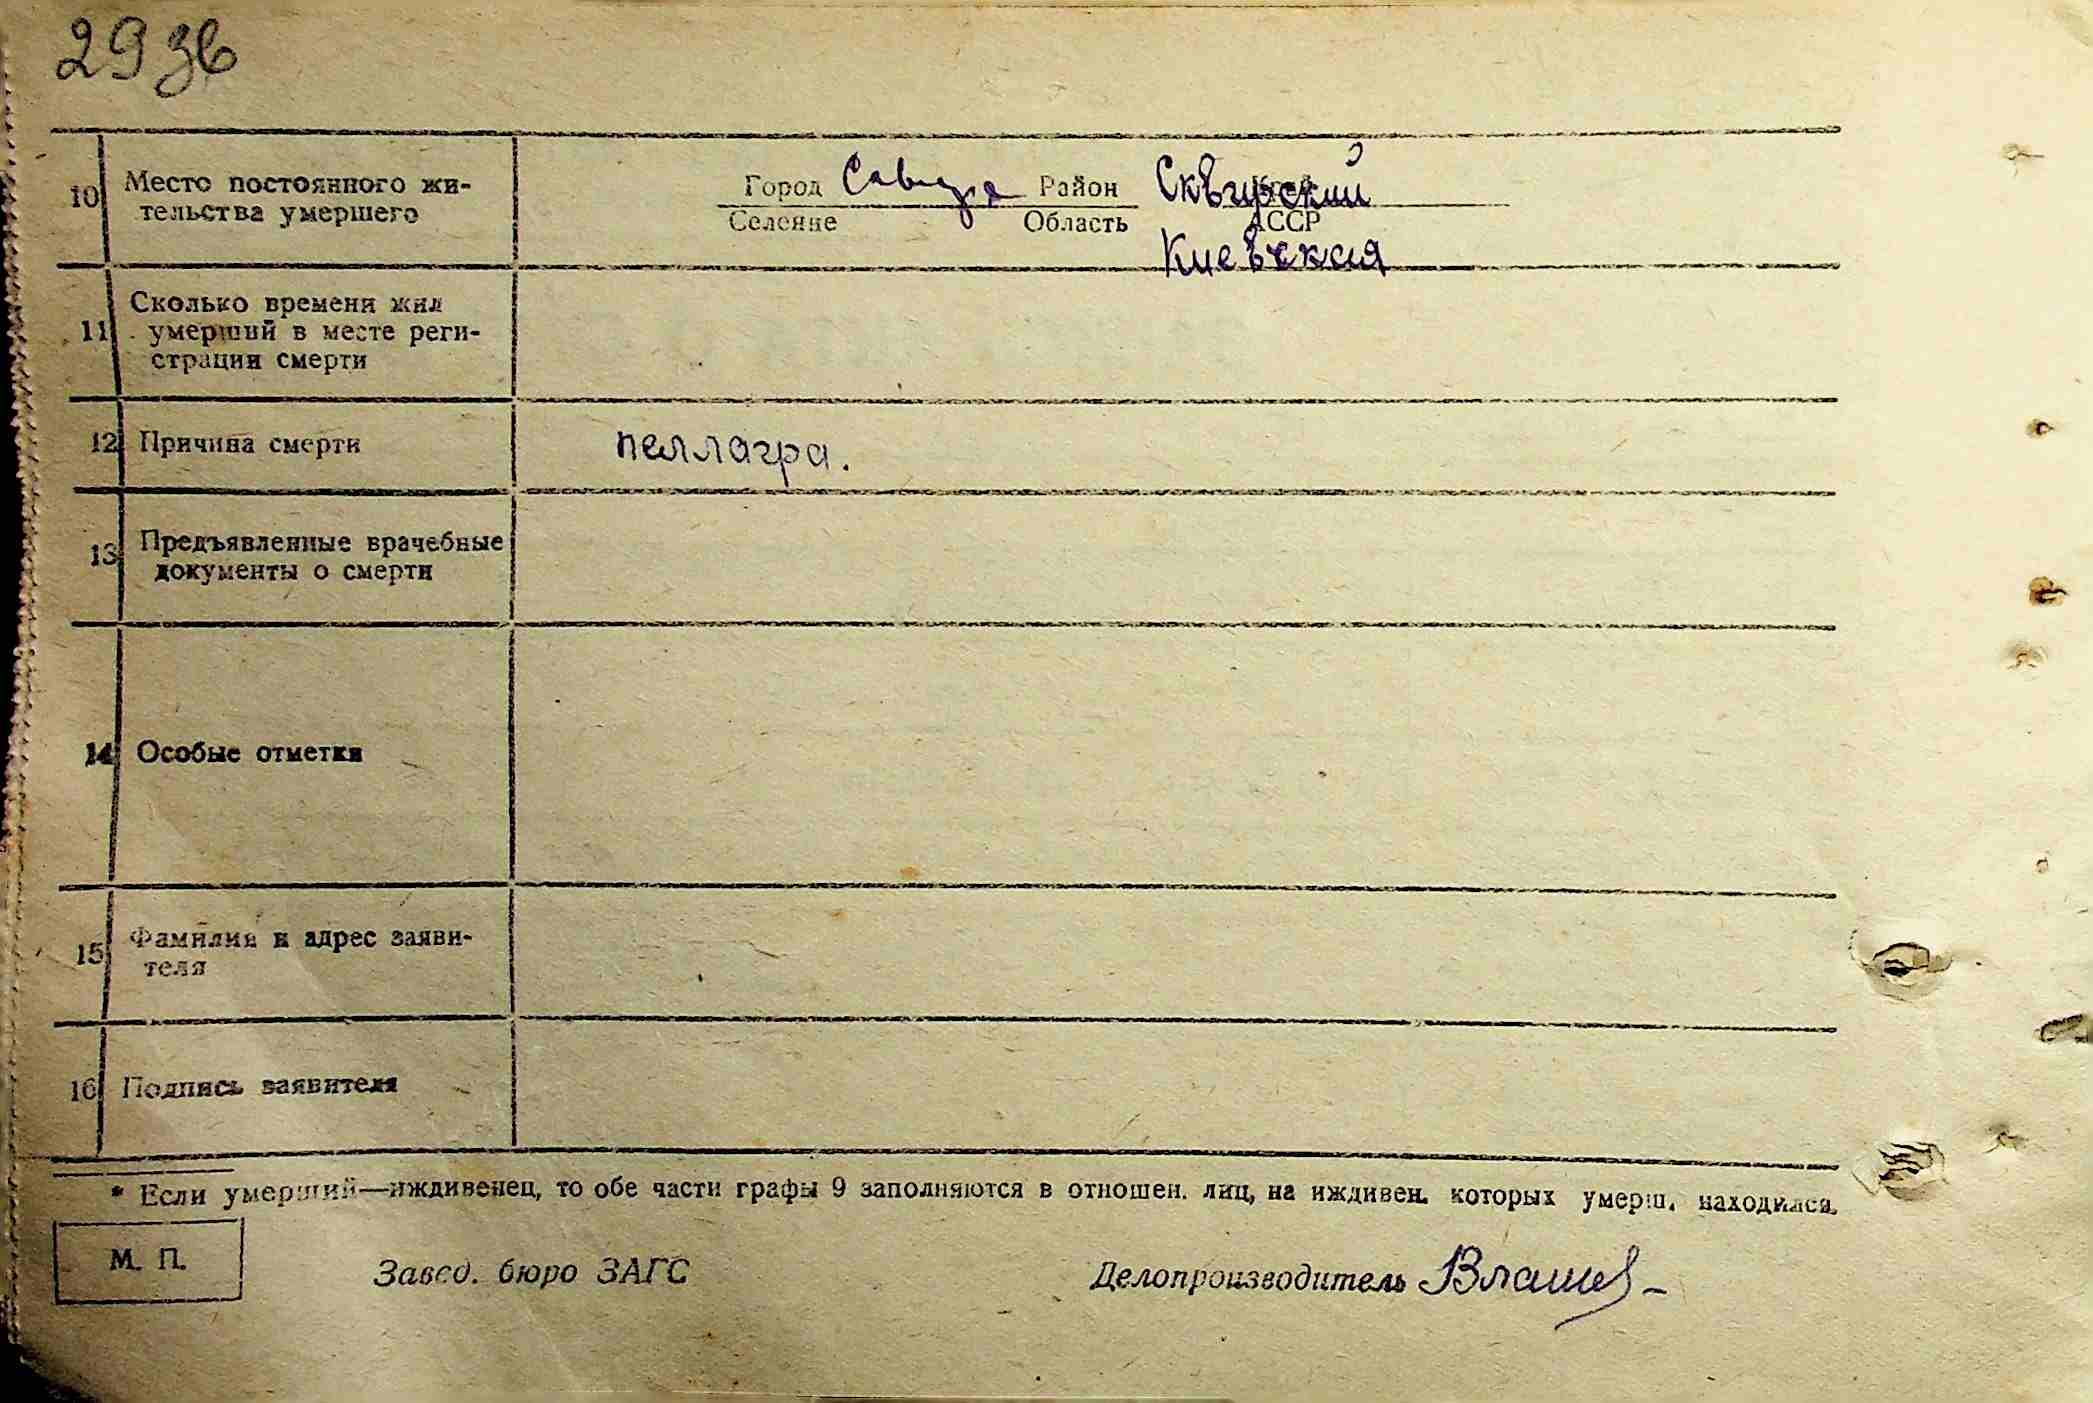 29 зв
10 Место постоянного жи-
тельства умершего
Город Район Сквирский Край
Селение Область АССР
Киевская
11 Сколько времени жил
умерший в месте реги-
страции смерти
12 Причина смерти пеллагра.
13 Предъявленные врачебные
документы о смерти
14 Особые отметки
15 Фамилия и адрес заяви-
теля
16 Подпись заявителя
* Если умерший—иждивенец, то обе части графы 9 заполняются в отношен. лиц, на иждивен. которых умерш. находился.
М. П.
Завед. бюро ЗАГС
Делопроизводитель